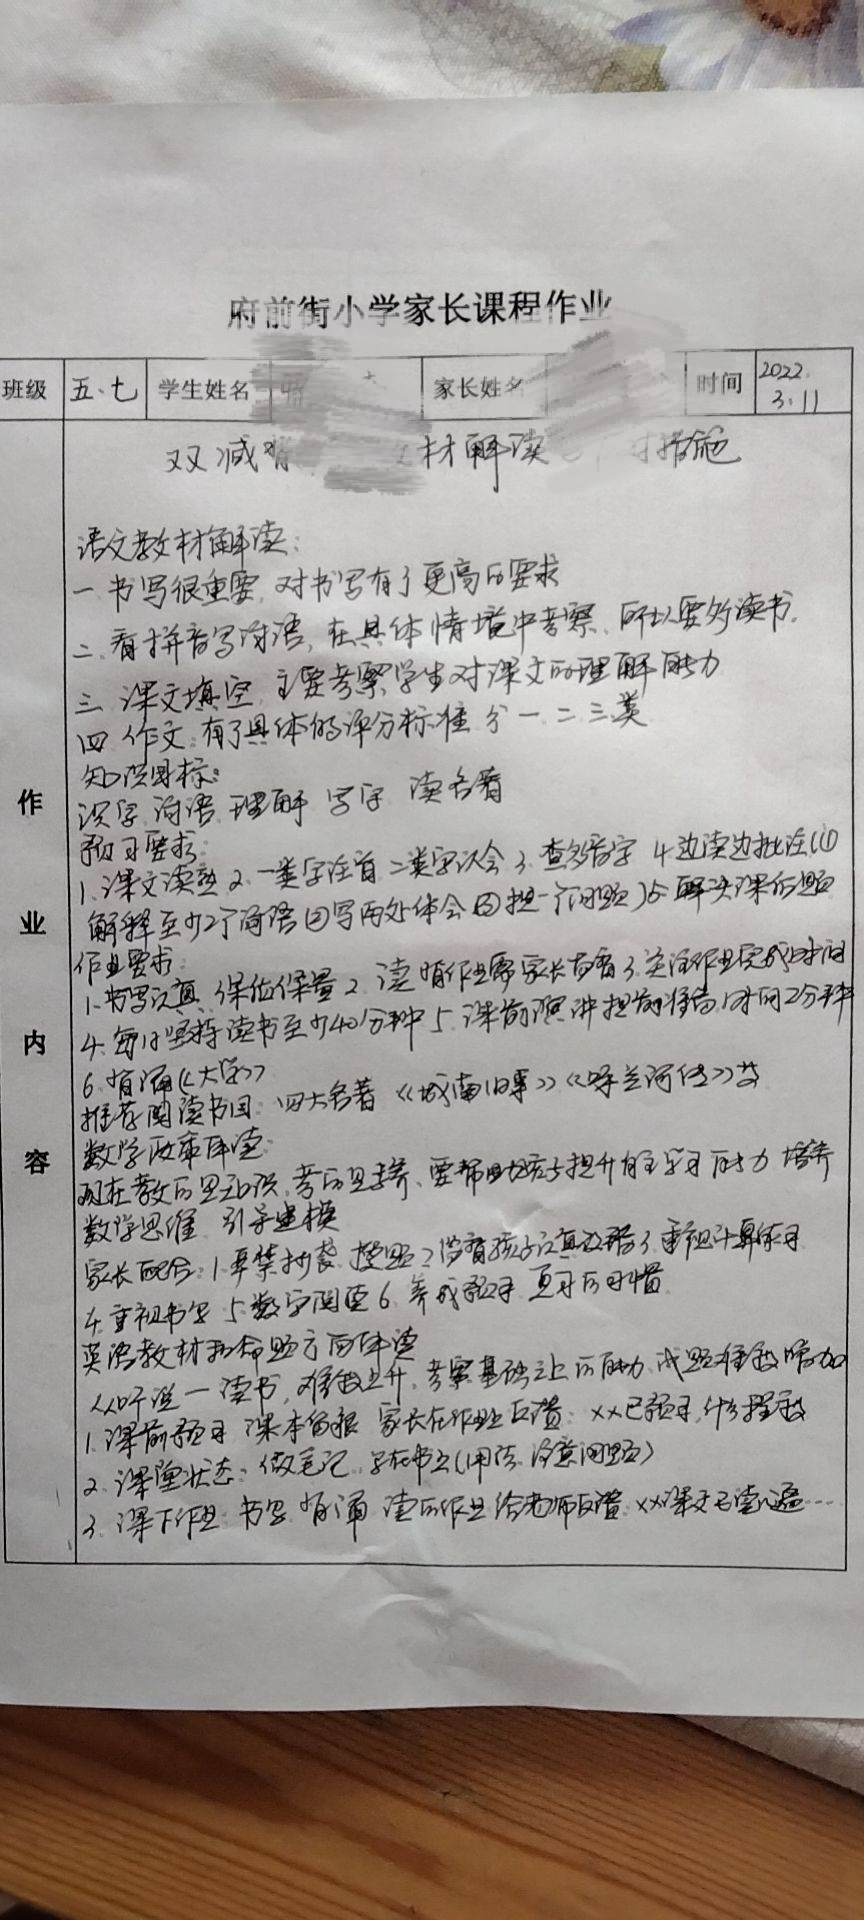 府前街小学家长课程作业
班级 五.七 学生姓名 家长姓名 时间 2022.3.11
双减 材解读 措施
作业内容
语文教材解读:
一 书写很重要,对书写有了更高的要求
二、看拼音写词语,在具体情境中考察、所以要多读书.
三 课文填空 主要考察学生对课文的理解能力
四 作文:有了具体的评分标准 分一、二、三类
知识目标:
识字 词语 理解 写字 读名著
预习要求:
1.课文读熟 2.一类字注音 二类字认会 3.查多音字 4.边读边批注(①
解释至少2个词语②写两处体会③提一个问题)5.解决课后题
作业要求:
1.书写认真,保质保量 2. 读 背作业需家长 3.关注作业完成时间
4.每日坚持读书至少40分钟 5.课前演讲 提前准备,时间2分钟
6.背诵《大学》
推荐阅读书目:四大名著《城南旧事》《呼兰河传》等
数学政策解读:
现在教的是知识,考的是素养、要帮助孩子提升自主学习能力 培养
数学思维 引导建模
家长配合:1.严禁抄袭、搜题 2.督着孩子认真改错 3.重视计算练习
4.重视书写 5.数学阅读 6.养成预习、复习的习惯
英语教材和命题方面解读
从听说一读书,难度上升,考察基础之上的能力,成题难度增加
1.课前预习 课本 家长在作业上反馈:××已预习,什么程度
2.课堂状态:做笔记,写在书上(用法、注意问题)
3.课下作业 书写 背诵 读的作业给老师反馈:××课文已读 遍……